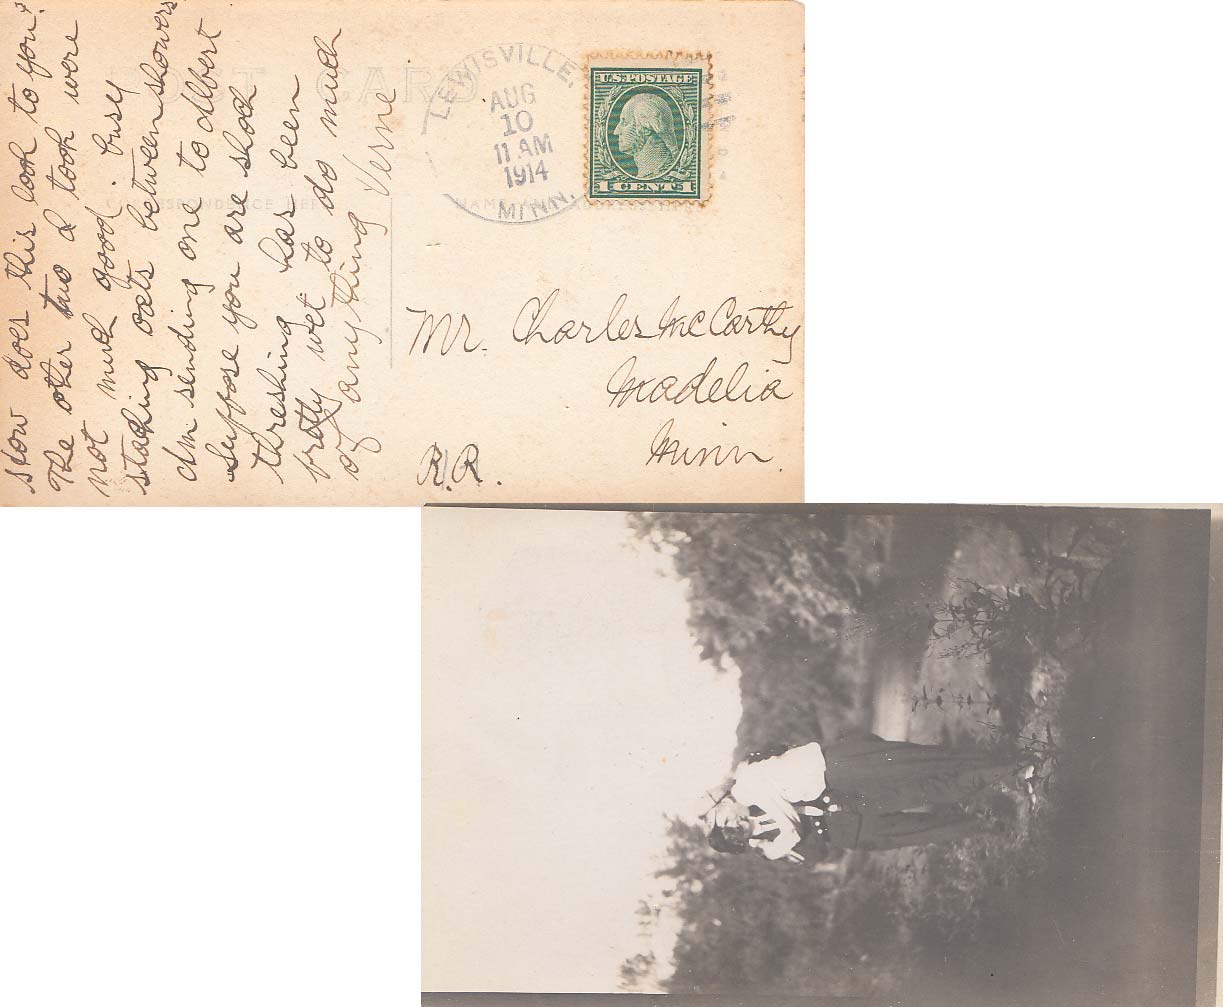 How does this look to you?
The other two I took were
not much good. busy
stacking oats between showers
Am sending one to Albert
Suppose you are shock
threshing has been
pretty wet to do much
of anything Verne
POST CARD
CORRESPONDENCE HERE
NAME AND ADDRESS HERE
LEWISVILLE,
AUG
10
11 AM
1914
MINN.
U.S. POSTAGE
1 CENT 1
Mr. Charles McCarthy
Madelia
Minn.
R.R.